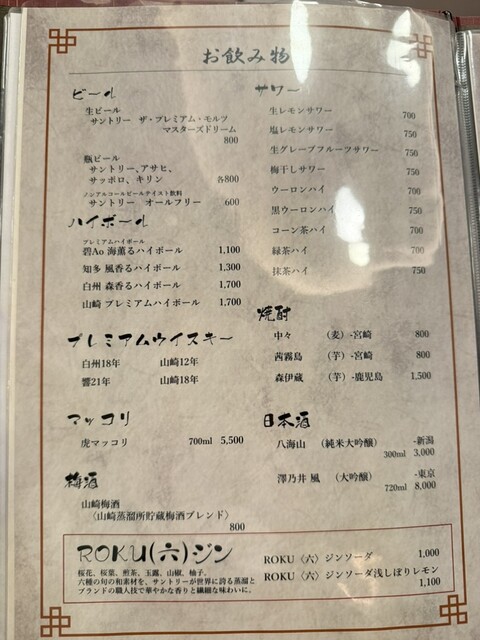 お飲み物
ビール
生ビール
サントリー ザ・プレミアム・モルツ
マスターズドリーム
800
瓶ビール
サントリー、アサヒ、
サッポロ、キリン 各800
ノンアルコールビールテイスト飲料
サントリー オールフリー 600
ハイボール
プレミアムハイボール
碧Ao 海薫るハイボール 1,100
知多 風香るハイボール 1,300
白州 森香るハイボール 1,700
山崎 プレミアムハイボール 1,700
プレミアムウイスキー
白州18年 山崎12年
響21年 山崎18年
マッコリ
虎マッコリ 700ml 5,500
梅酒
山崎梅酒
〈山崎蒸溜所貯蔵梅酒ブレンド〉
800
サワー
生レモンサワー 700
塩レモンサワー 750
生グレープフルーツサワー 750
梅干しサワー 750
ウーロンハイ 700
黒ウーロンハイ 750
コーン茶ハイ 700
緑茶ハイ 700
抹茶ハイ 750
焼酎
中々 （麦）-宮崎 800
茜霧島 （芋）-宮崎 800
森伊蔵 （芋）-鹿児島 1,500
日本酒
八海山 （純米大吟醸） -新潟
300ml 3,000
澤乃井 凰 （大吟醸） -東京
720ml 8,000
ROKU(六)ジン
桜花、桜葉、煎茶、玉露、山椒、柚子。
六種の旬の和素材を、サントリーが世界に誇る蒸溜と
ブランドの職人技で華やかな香りと繊細な味わいに。
ROKU〈六〉ジンソーダ 1,000
ROKU〈六〉ジンソーダ浅しぼりレモン
1,100